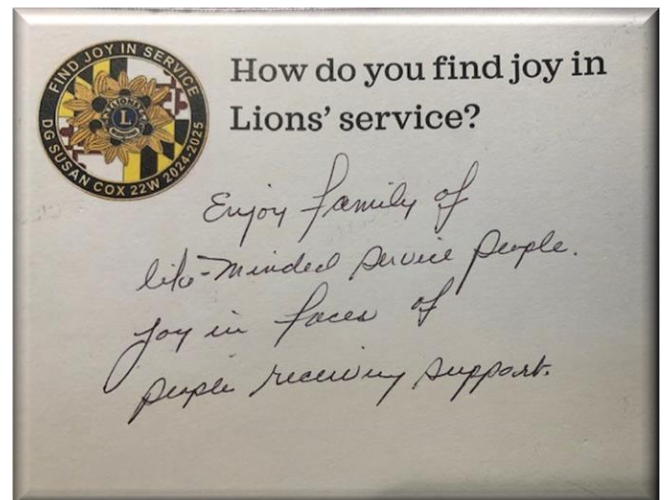 FIND JOY IN SERVICE
DG SUSAN COX 22W 2024-2025
LIONS
L
How do you find joy in
Lions’ service?
Enjoy family of
like-minded service people.
Joy in faces of
people receiving support.